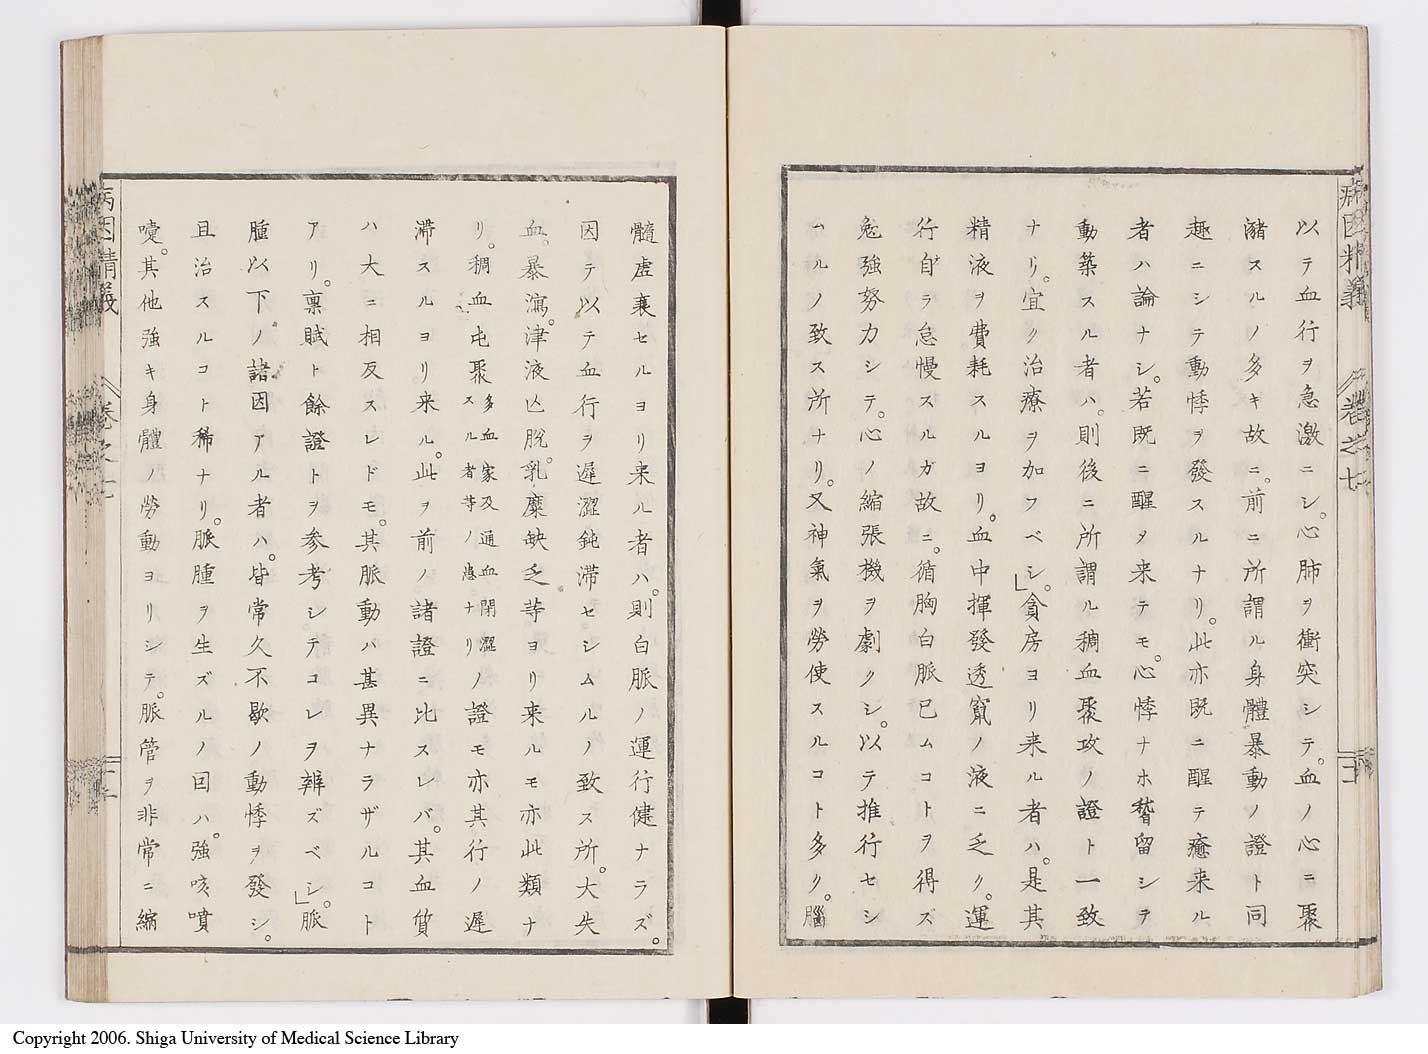 病因精義
卷之七
以テ血行ヲ急激ニシ。心肺ヲ衝突シテ。血ノ心ニ聚
瀦スルノ多キ故ニ。前ニ所謂ル身體暴動ノ證ト同
趣ニシテ動悸ヲ發スルナリ。此亦既ニ醒テ癒来ル
者ハ論ナシ。若既ニ醒ヲ来テモ。心悸ナホ瞀留シテ
動築スル者ハ。則後ニ所謂ル稠血聚攻ノ證ト一致
ナリ。宜ク治療ヲ加フベシ。」貪房ヨリ来ル者ハ。是其
精液ヲ費耗スルヨリ。血中揮發透竄ノ液ニ乏ク。運
行自ラ怠慢スルガ故ニ。循胸白脈已ムコトヲ得ズ
勉強努力シテ。心ノ縮張機ヲ劇クシ。以テ推行セシ
ムルノ致ス所ナリ。又神氣ヲ勞使スルコト多ク。腦
髓虛衰セルヨリ来ル者ハ。則白脈ノ運行健ナラズ。
因テ以テ血行ヲ遲澀鈍滯セシムルノ致ス所。大失
血。暴瀉。津液亡脫。乳糜缺乏等ヨリ来ルモ亦此類ナ
リ。稠血屯聚多血家及通血閉澀スル者等ノ患ナリノ證モ亦其行ノ遲
滯スルヨリ来ル。此ヲ前ノ諸證ニ比スレバ。其血質
ハ大ニ相反スレドモ。其脈動ハ甚異ナラザルコト
アリ。稟賦ト餘證トヲ參考シテコレヲ辨ズベシ。」脈
腫以下ノ諸因アル者ハ。皆常久不歇ノ動悸ヲ發シ。
且治スルコト稀ナリ。脈腫ヲ生ズルノ因ハ。強咳噴
嚏。其他強キ身體ノ勞動ヨリシテ。脈管ヲ非常ニ縮
病因精義
卷之七
Copyright 2006. Shiga University of Medical Science Library